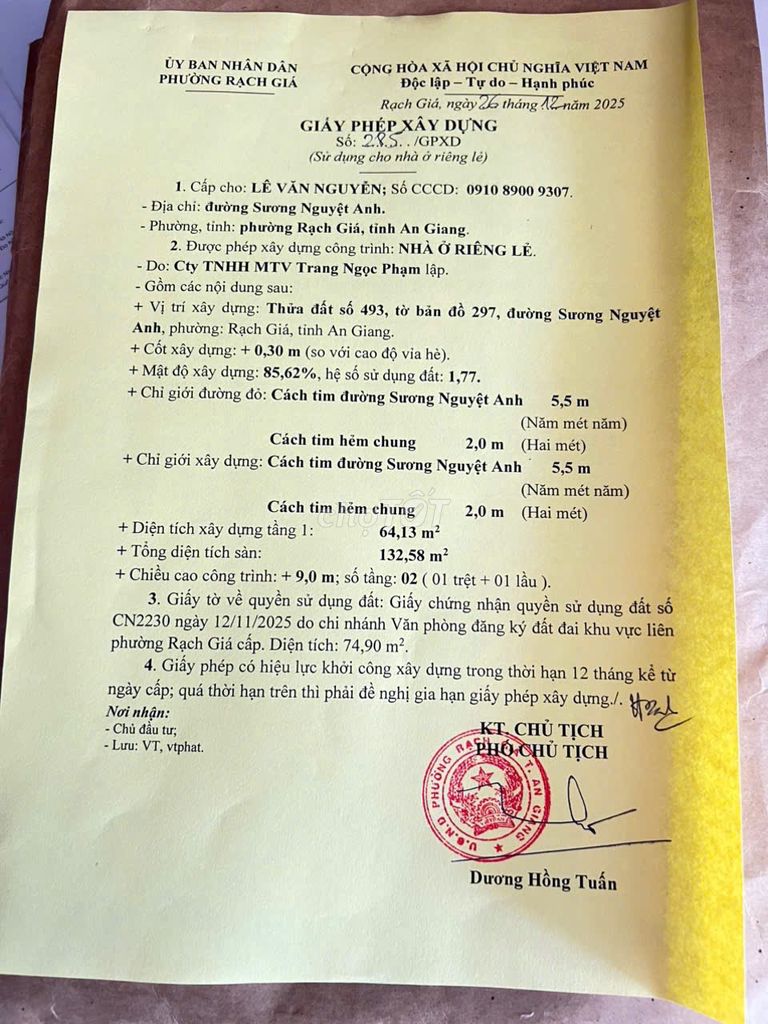 ỦY BAN NHÂN DÂN
PHƯỜNG RẠCH GIÁ
CỘNG HÒA XÃ HỘI CHỦ NGHĨA VIỆT NAM
Độc lập – Tự do – Hạnh phúc
Rạch Giá, ngày 26 tháng 12 năm 2025
GIẤY PHÉP XÂY DỰNG
Số: 285../GPXD
(Sử dụng cho nhà ở riêng lẻ)
1. Cấp cho: LÊ VĂN NGUYỄN; Số CCCD: 0910 8900 9307.
- Địa chỉ: đường Sương Nguyệt Anh.
- Phường, tỉnh: phường Rạch Giá, tỉnh An Giang.
2. Được phép xây dựng công trình: NHÀ Ở RIÊNG LẺ.
- Do: Cty TNHH MTV Trang Ngọc Phạm lập.
- Gồm các nội dung sau:
+ Vị trí xây dựng: Thửa đất số 493, tờ bản đồ 297, đường Sương Nguyệt
Anh, phường: Rạch Giá, tỉnh An Giang.
+ Cốt xây dựng: + 0,30 m (so với cao độ vỉa hè).
+ Mật độ xây dựng: 85,62%, hệ số sử dụng đất: 1,77.
+ Chỉ giới đường đỏ: Cách tim đường Sương Nguyệt Anh 5,5 m
(Năm mét năm)
Cách tim hẻm chung 2,0 m (Hai mét)
+ Chỉ giới xây dựng: Cách tim đường Sương Nguyệt Anh 5,5 m
(Năm mét năm)
Cách tim hẻm chung 2,0 m (Hai mét)
chợTỐT
+ Diện tích xây dựng tầng 1: 64,13 m²
+ Tổng diện tích sàn: 132,58 m²
+ Chiều cao công trình: + 9,0 m; số tầng: 02 ( 01 trệt + 01 lầu ).
3. Giấy tờ về quyền sử dụng đất: Giấy chứng nhận quyền sử dụng đất số
CN2230 ngày 12/11/2025 do chi nhánh Văn phòng đăng ký đất đai khu vực liên
phường Rạch Giá cấp. Diện tích: 74,90 m².
4. Giấy phép có hiệu lực khởi công xây dựng trong thời hạn 12 tháng kể từ
ngày cấp; quá thời hạn trên thì phải đề nghị gia hạn giấy phép xây dựng./.
Nơi nhận:
- Chủ đầu tư;
- Lưu: VT, vtphat.
KT. CHỦ TỊCH
PHÓ CHỦ TỊCH
U.B.N.D PHƯỜNG RẠCH GIÁ T. AN GIANG
Dương Hồng Tuấn